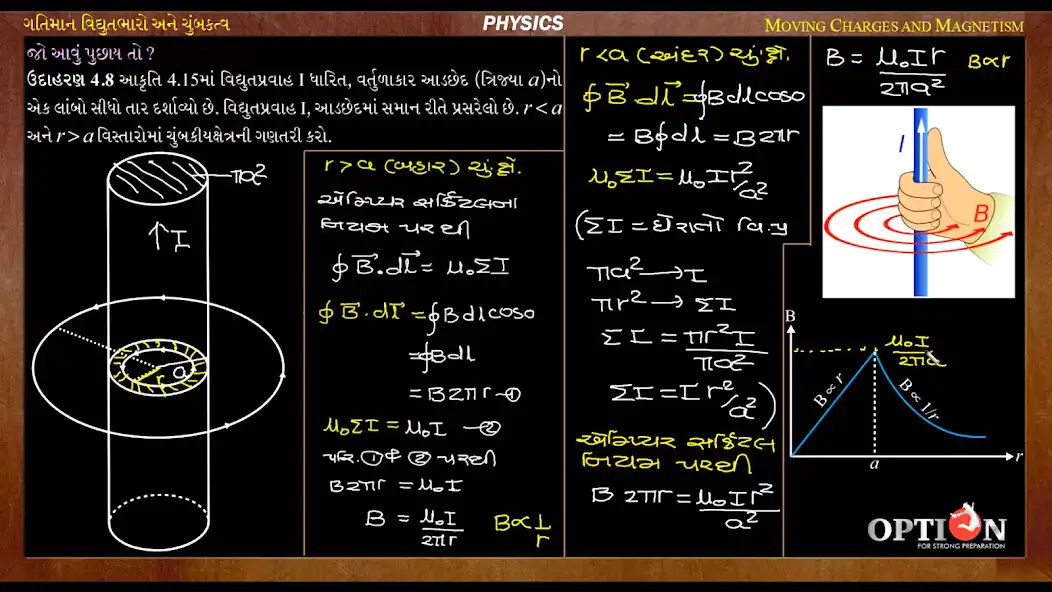 ગતિમાન વિદ્યુતભારો અને ચુંબકત્વ
PHYSICS
MOVING CHARGES AND MAGNETISM
જો આવું પુછાય તો ?
ઉદાહરણ 4.8 આકૃતિ 4.15માં વિદ્યુતપ્રવાહ I ધારિત, વર્તુળાકાર આડછેદ (ત્રિજ્યા a)નો
એક લાંબો સીધો તાર દર્શાવ્યો છે. વિદ્યુતપ્રવાહ I, આડછેદમાં સમાન રીતે પ્રસરેલો છે. r < a
અને r > a વિસ્તારોમાં ચુંબકીયક્ષેત્રની ગણતરી કરો.
πa²
↑ I
r
a
r > a (બહાર) ચું.ક્ષે.
એમ્પિયર સર્કિટલના
નિયમ પરથી
∮ B⃗ . dl⃗ = μ₀ΣI
∮ B⃗ . dl⃗ = ∮ B dl cos0
= ∮ B dl
= B2πr —①
μ₀ΣI = μ₀I —②
પરિ. ① ② પરથી
B2πr = μ₀I
B = μ₀I / 2πr
B ∝ 1/r
r < a (અંદર) ચું.ક્ષે.
∮ B⃗ . dl⃗ = ∮ B dl cos0
= B ∮ dl = B2πr
μ₀ΣI = μ₀ I r²/a²
(ΣI = ઘેરાતો વિ.પ્ર
πa² → I
πr² → ΣI
ΣI = πr² I / πa²
ΣI = I r²/a² )
એમ્પિયર સર્કિટલ
નિયમ પરથી
B 2πr = μ₀ I r² / a²
B = μ₀ I r / 2πa²
B ∝ r
I
B
B
μ₀I / 2πa
B ∝ r
B ∝ 1/r
a
r
OPTION
FOR STRONG PREPARATION